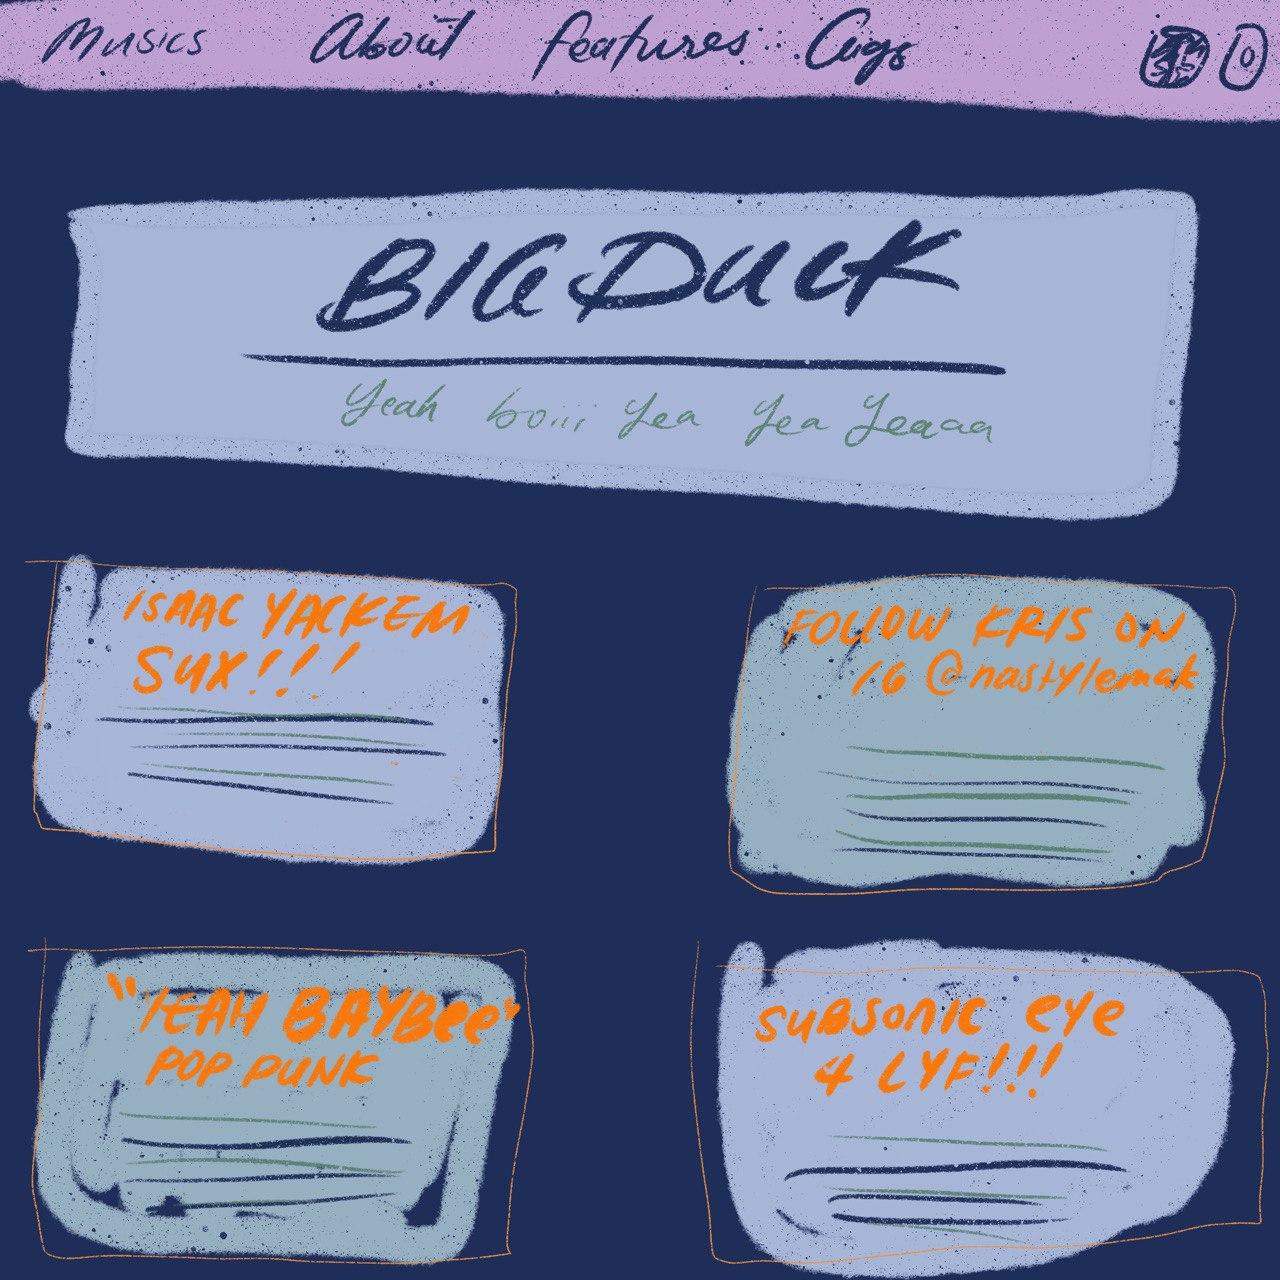 Musics About features Cugs
0
BIG DUCK
Yeah boiii Yea Yea Yeaaa
ISAAC YACKEM
SUX!!!
FOLLOW KRIS ON
IG @nastylemak
"YEAH BAYBee"
POP PUNK
SUBSONIC eYe
4 LYF!!!